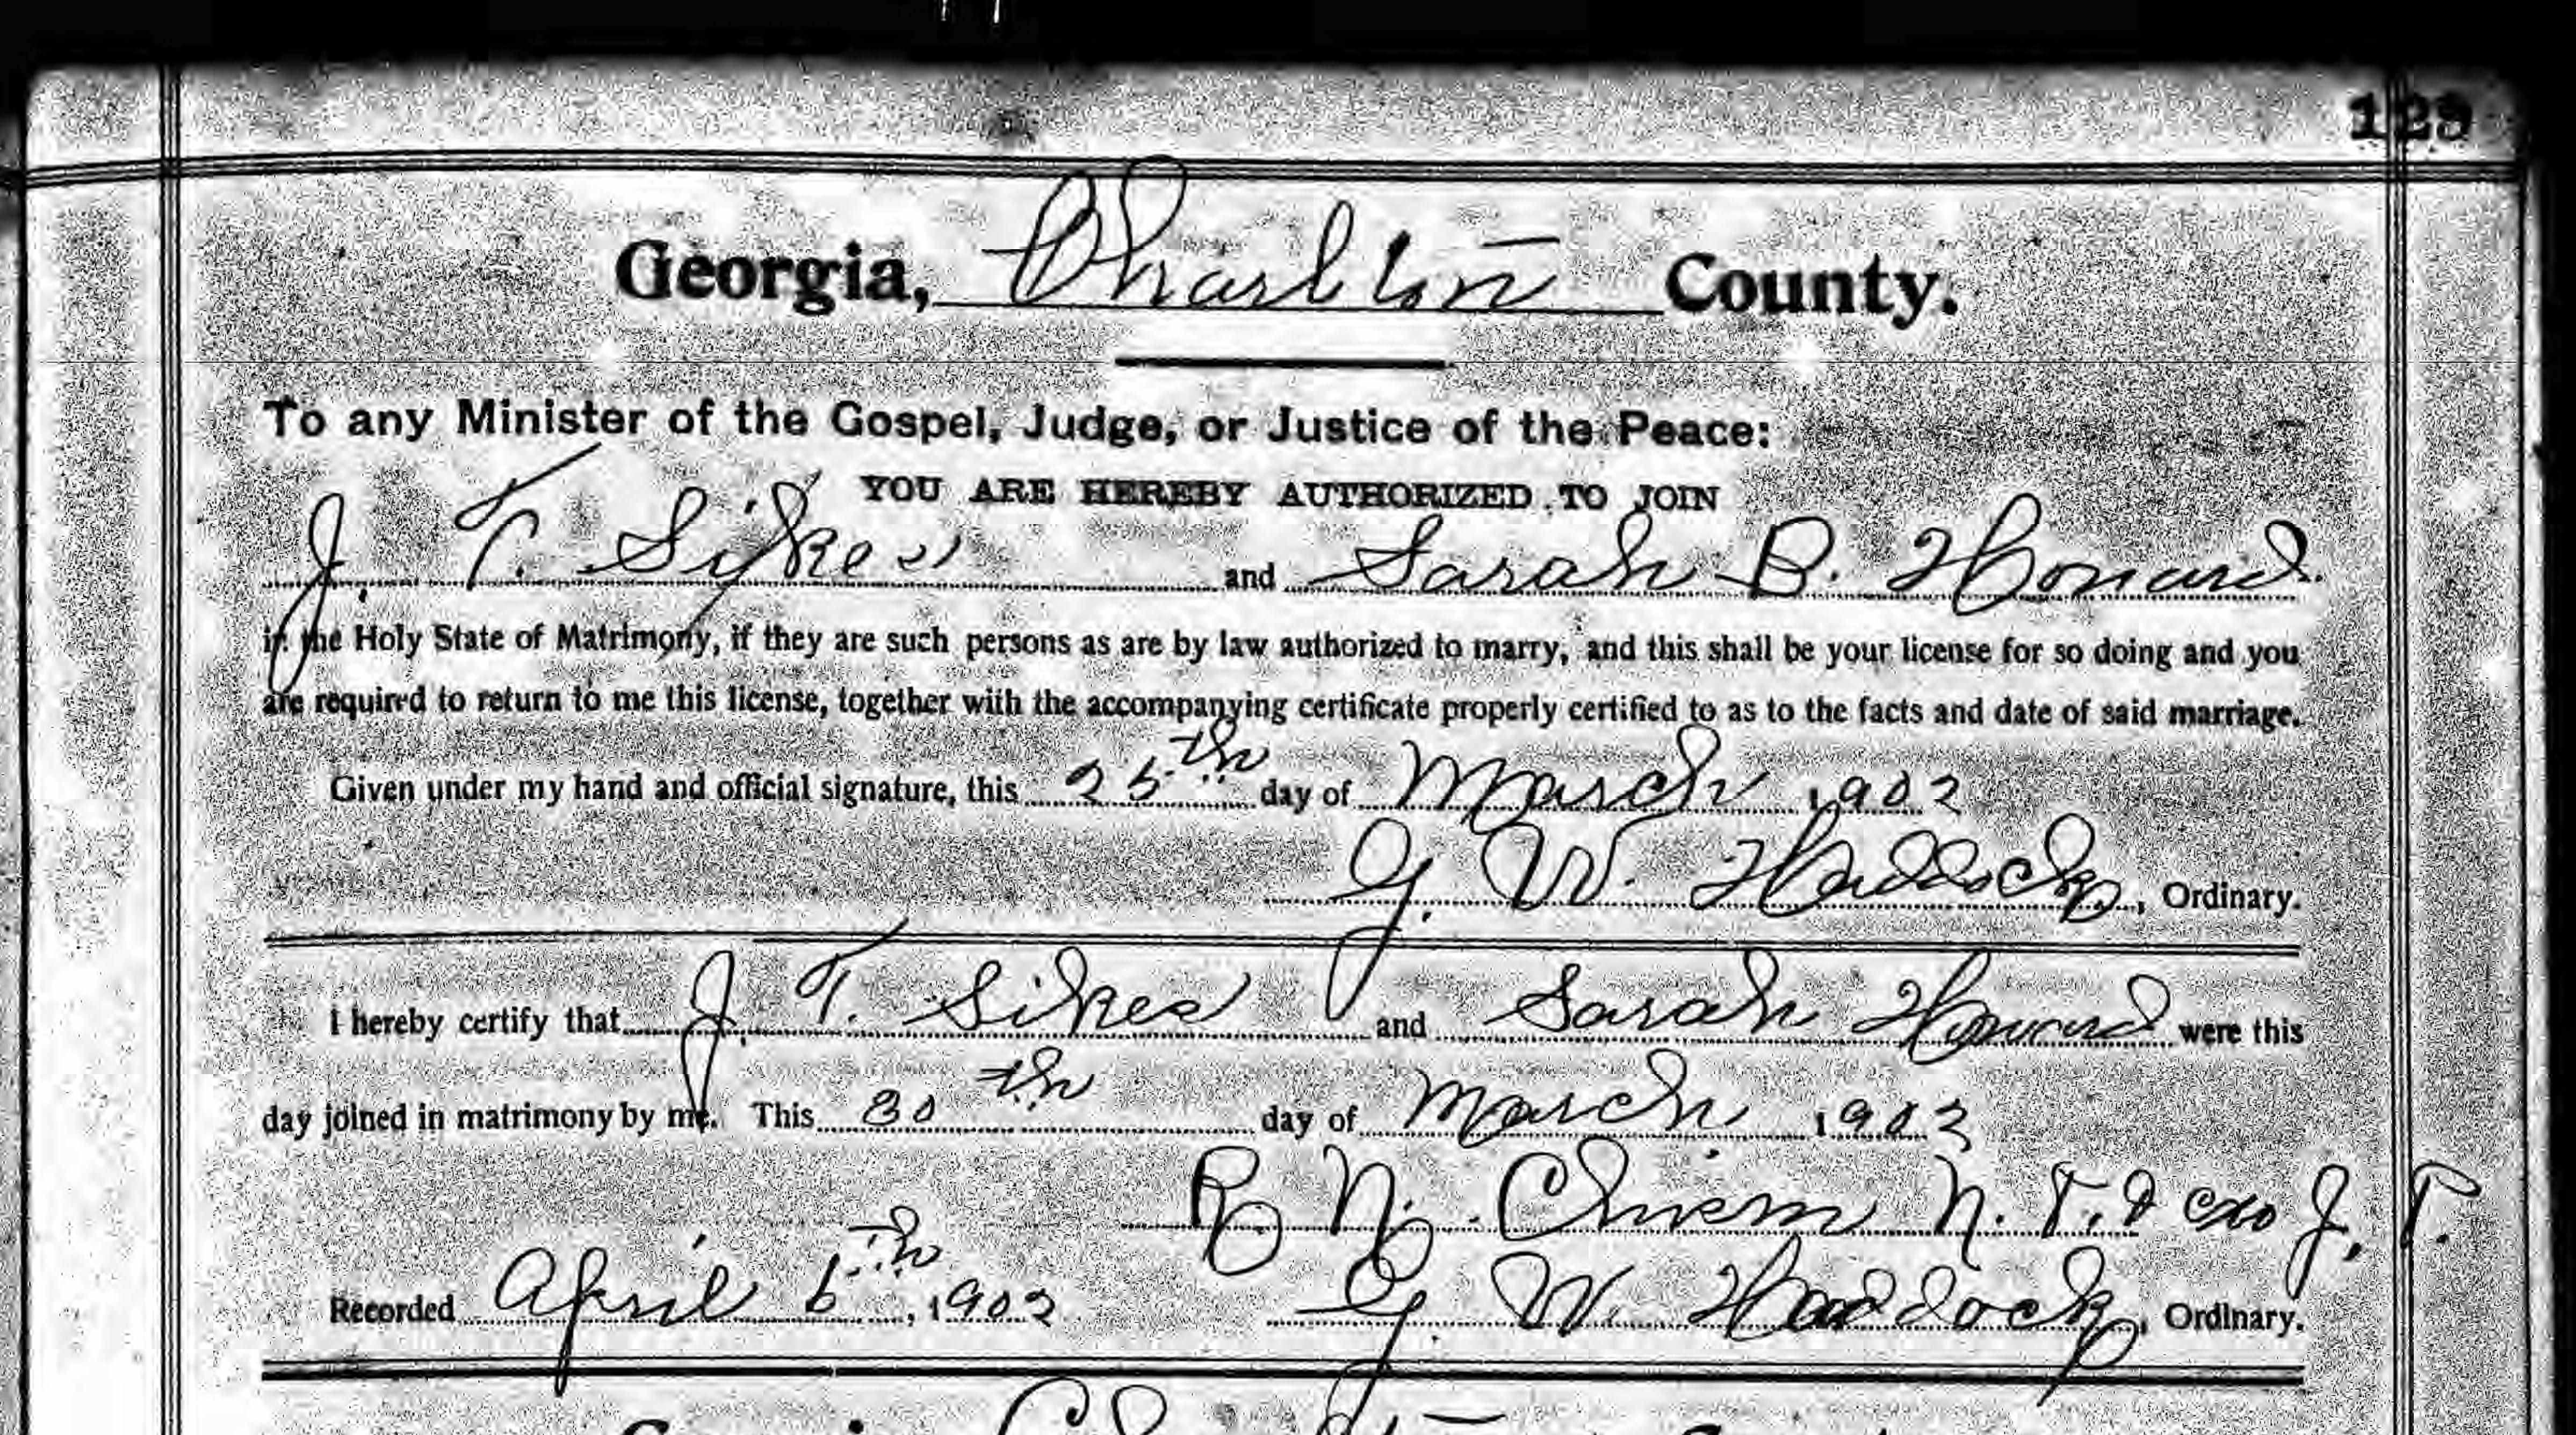 129
Georgia, Charlton County.
To any Minister of the Gospel, Judge, or Justice of the Peace:
YOU ARE HEREBY AUTHORIZED TO JOIN
J. T. Sykes and Sarah B. Howard
in the Holy State of Matrimony, if they are such persons as are by law authorized to marry, and this shall be your license for so doing and you
are required to return to me this license, together with the accompanying certificate properly certified to as to the facts and date of said marriage.
Given under my hand and official signature, this 25th day of March 1902
G. W. Haddock, Ordinary.
I hereby certify that J. T. Sikes and Sarah Howard were this
day joined in matrimony by me. This 30th day of March 1902
R. N. N. P. & exo J. P.
Recorded April 6th, 1902 G. W. Haddock, Ordinary.